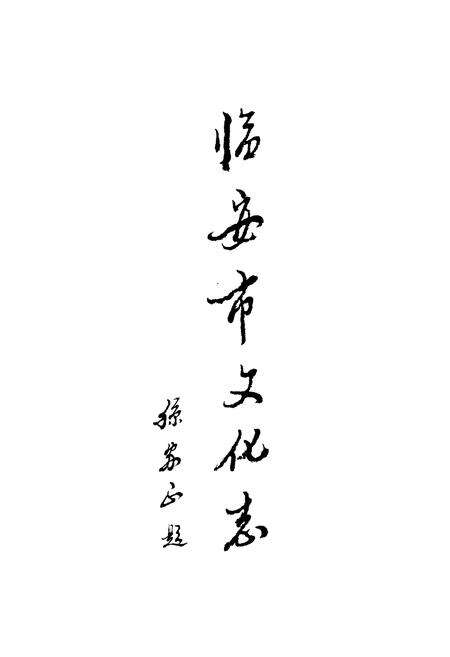 临安市文化志
孫家正题